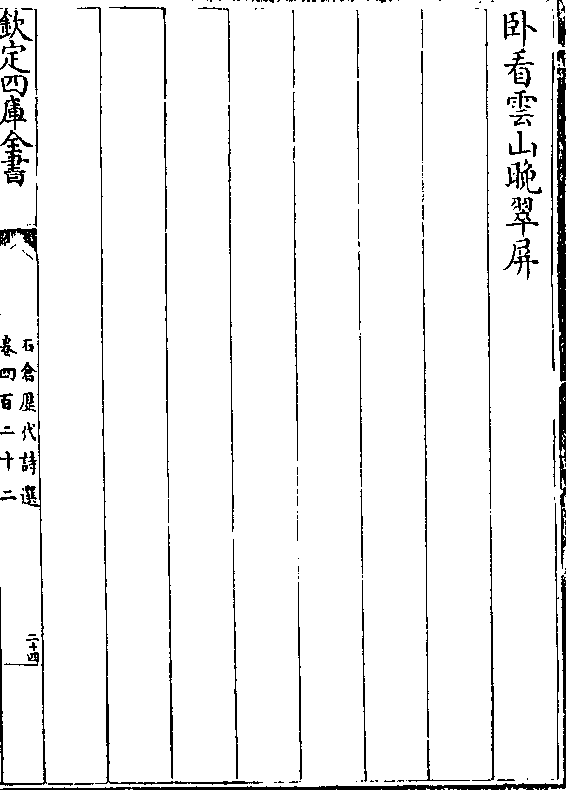 卧看雲山晚翠屏
欽定四庫全書
石倉歴代詩選
卷四百二十二
二十四